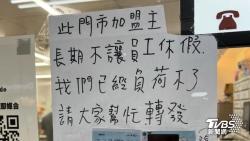 此門市加盟主
長期不讓員工休假.
我們已經負荷不了
請大家幫忙轉發
TVBS
新聞網